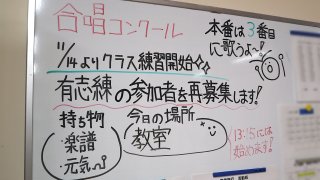 合唱コンクール
本番は3番目
に歌うよ~!
11/14よりクラス練習開始
有志練の参加者を再募集します!
持ち物
・楽譜
・元気
今日の場所
教室
13:15には
始めます!